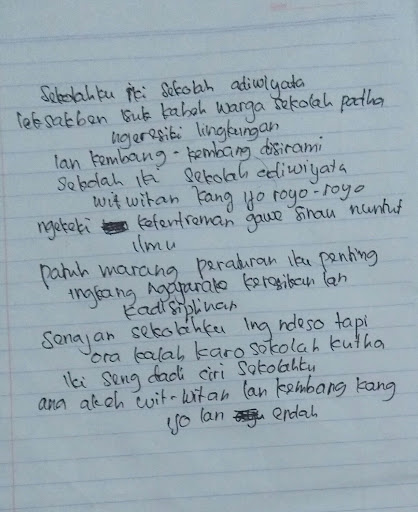 Sekolahku iki sekolah adiwiyata
saben isuk kabeh warga sekolah padha
ngeresiki lingkungan
lan kembang-kembang disirami
Sekolah iki sekolah adiwiyata
wit witan kang ijo royo-royo
ngekeki ketentreman gawe sinau nuntut
ilmu
patuh marang peraturan iku penting
ingkang keresikan lan
kadisiplinan
Senajan sekolahku ing ndeso tapi
ora kalah karo sekolah kutha
Iki seng dadi ciri sekolahku
ana akeh wit-witan lan kembang kang
ijo lan endah